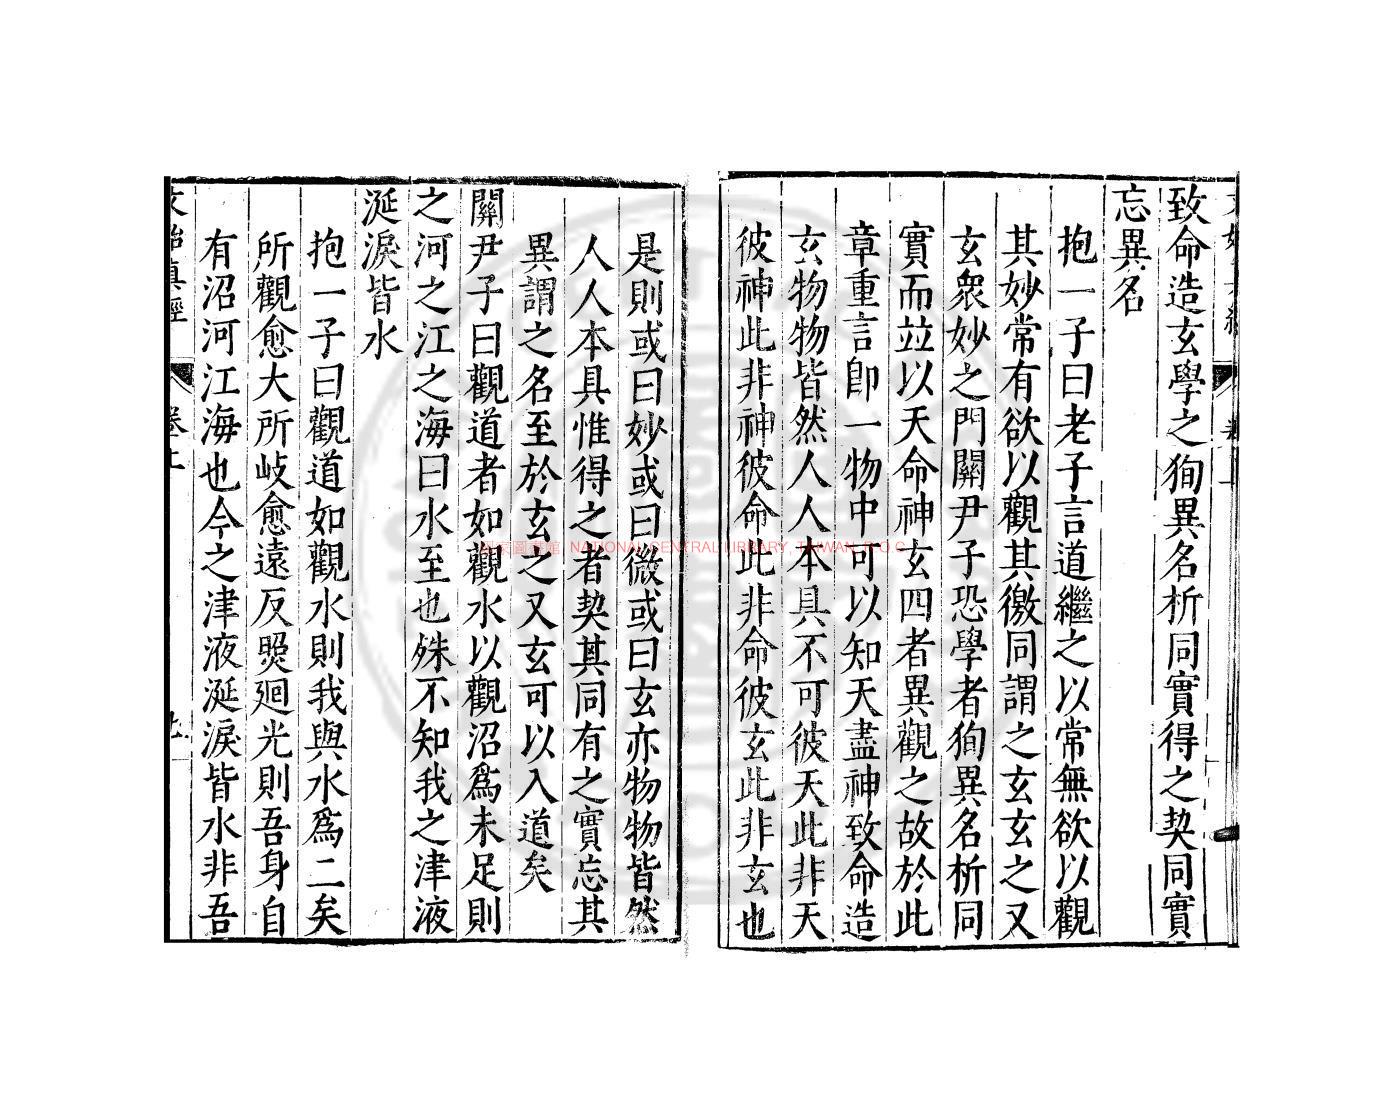 致命造玄學之狥異名析同實得之契同實
忘異名
抱一子曰老子言道繼之以常無欲以觀
其妙常有欲以觀其徼同謂之玄玄之又
玄衆妙之門關尹子恐學者狥異名析同
實而竝以天命神玄四者異觀之故於此
章重言卽一物中可以知天盡神致命造
玄物物皆然人人本具不可彼天此非天
彼神此非神彼命此非命彼玄此非玄也
是則或曰妙或曰微或曰玄亦物物皆然
人人本具惟得之者契其同有之實忘其
異謂之名至於玄之又玄可以入道矣
關尹子曰觀道者如觀水以觀沼爲未足則
之河之江之海曰水至也殊不知我之津液
涎淚皆水
抱一子曰觀道如觀水則我與水爲二矣
所觀愈大所岐愈遠反煛廻光則吾身自
有沼河江海也今之津液涎淚皆水非吾
文始真經 卷上
國家圖書館 NATIONAL CENTRAL LIBRARY, TAIWAN, R.O.C